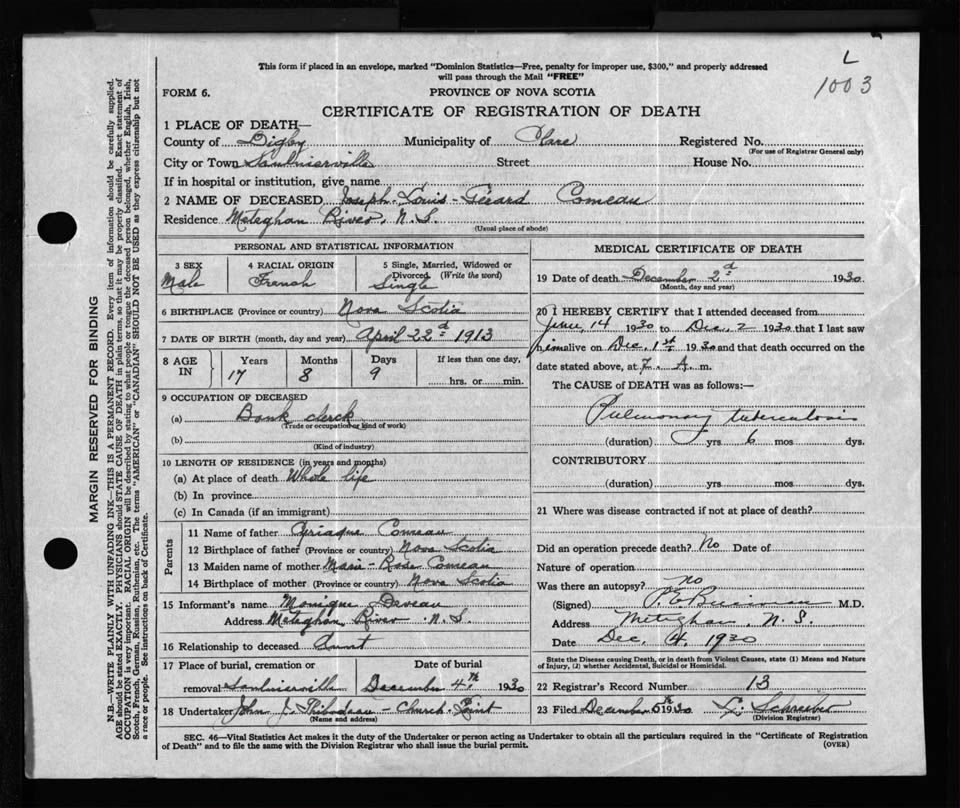 L
1003
This form if placed in an envelope, marked "Dominion Statistics—Free, penalty for improper use, $300," and properly addressed
will pass through the Mail "FREE"
FORM 6.
PROVINCE OF NOVA SCOTIA
CERTIFICATE OF REGISTRATION OF DEATH
1 PLACE OF DEATH—
County of Digby Municipality of Clare Registered No.
(For use of Registrar General only)
City or Town Saulnierville Street House No.
If in hospital or institution, give name
2 NAME OF DECEASED Joseph-Louis-Gérard Comeau
Residence Meteghan River, N.S.
(Usual place of abode)
PERSONAL AND STATISTICAL INFORMATION
3 SEX 4 RACIAL ORIGIN 5 Single, Married, Widowed or
Divorced. (Write the word)
Male French Single
6 BIRTHPLACE (Province or country) Nova Scotia
7 DATE OF BIRTH (month, day and year) April 22d 1913
8 AGE IN Years Months Days If less than one day,
17 8 9 hrs. or min.
9 OCCUPATION OF DECEASED
(a) Bank clerck
(Trade or occupation or kind of work)
(b)
(Kind of industry)
10 LENGTH OF RESIDENCE (in years and months)
(a) At place of death Whole life
(b) In province
(c) In Canada (if an immigrant)
Parents
11 Name of father Cyriaque Comeau
12 Birthplace of father (Province or country) Nova Scotia
13 Maiden name of mother Marie-Rose Comeau
14 Birthplace of mother (Province or country) Nova Scotia
15 Informant's name Monique Deveau
Address Meteghan River N.S.
16 Relationship to deceased Aunt
17 Place of burial, cremation or Date of burial
removal Saulnierville December 4th 1930
18 Undertaker John J. Thibodeau - Church Point
(Name and address)
MEDICAL CERTIFICATE OF DEATH
19 Date of death December 2d 1930
(Month, day and year)
20 I HEREBY CERTIFY that I attended deceased from
June 14 1930 to Dec. 2 1930 that I last saw
him alive on Dec. 1st 1930 and that death occurred on the
date stated above, at 7 A. m.
The CAUSE OF DEATH was as follows:—
Pulmonary tuberculosis
(duration) yrs 6 mos dys.
CONTRIBUTORY
(duration) yrs. mos. dys.
21 Where was disease contracted if not at place of death?
Did an operation precede death? No Date of
Nature of operation
Was there an autopsy? no
(Signed) M.D.
Address Meteghan, N.S.
Date Dec. 4, 1930
State the Disease causing Death, or in death from Violent Causes, state (1) Means and Nature
of Injury, (2) whether Accidental, Suicidal or Homicidal.
22 Registrar's Record Number 13
23 Filed December 5th 1930
(Division Registrar)
SEC. 46—Vital Statistics Act makes it the duty of the Undertaker or person acting as Undertaker to obtain all the particulars required in the "Certificate of Registration
of Death" and to file the same with the Division Registrar who shall issue the burial permit.
(OVER)
MARGIN RESERVED FOR BINDING
N.B.—WRITE PLAINLY, WITH UNFADING INK—THIS IS A PERMANENT RECORD. Every item of information should be carefully supplied.
AGE should be stated EXACTLY. PHYSICIANS should STATE CAUSE OF DEATH in plain terms, so that it may be properly classified. Exact statement of
OCCUPATION is very important. RACIAL ORIGIN will be described by stating to what people or tongue the deceased person belonged, whether English, Irish,
Scotch, French, German, Russian, Ruthenian, etc. The terms "AMERICAN" or "CANADIAN" SHOULD NOT BE USED as they express citizenship but not
a race or people. See instructions on back of Certificate.